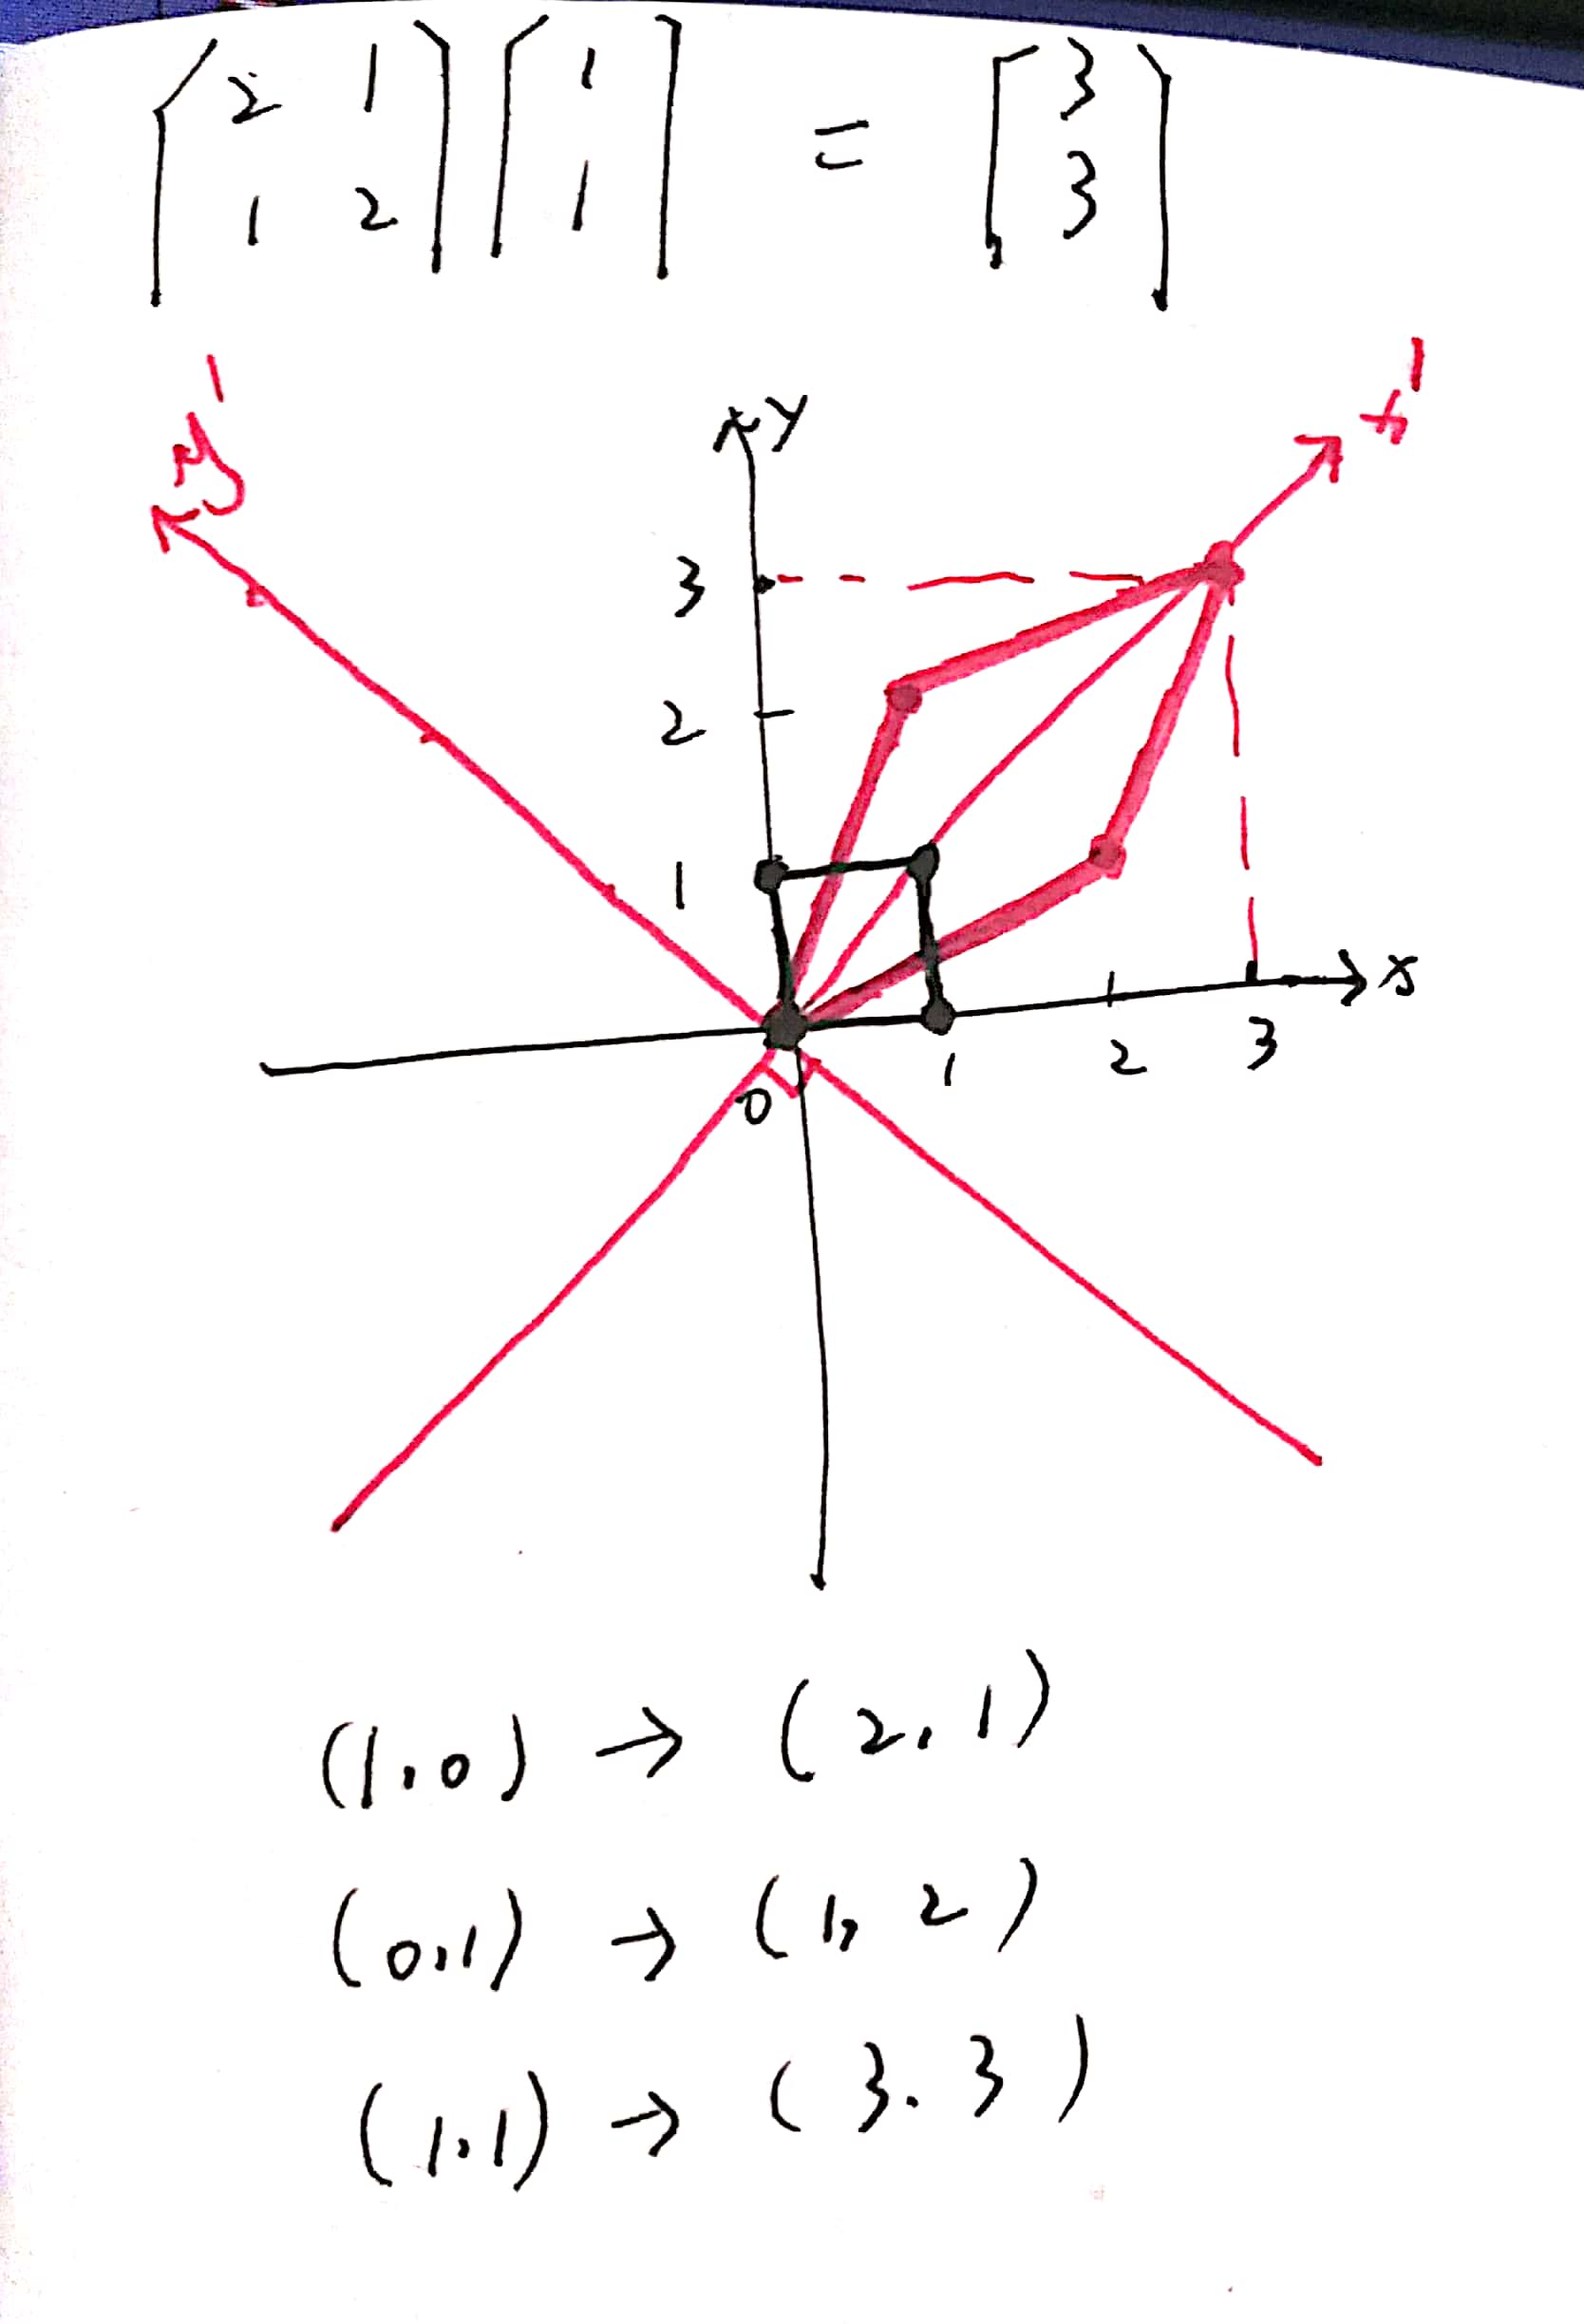 [2 1] [1] = [3]
[1 2] [1] [3]
y'
x'
y
3
2
1
x
0
1
2
3
(1,0) → (2,1)
(0,1) → (1,2)
(1,1) → (3.3)